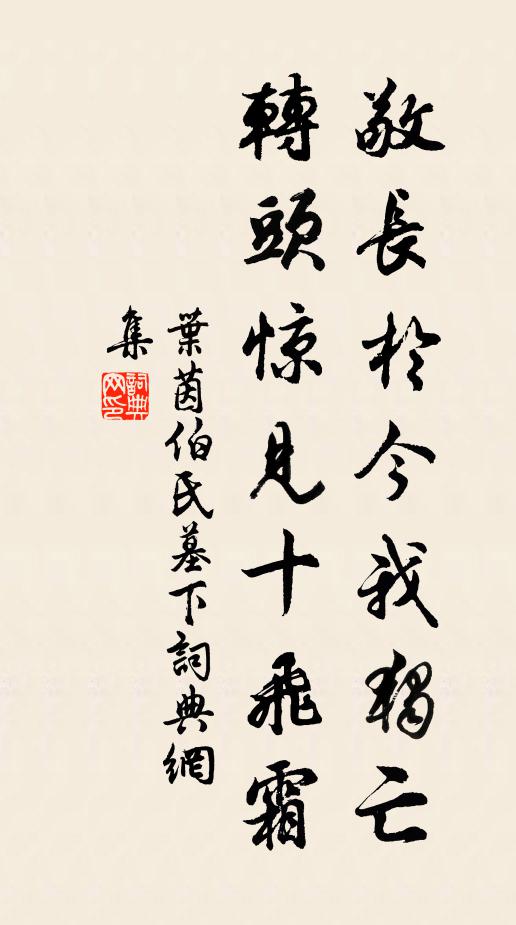 敬長於今我獨亡
轉頭惊見十飛霜
葉茵伯氏墓下詞典網
集
詞典
网印